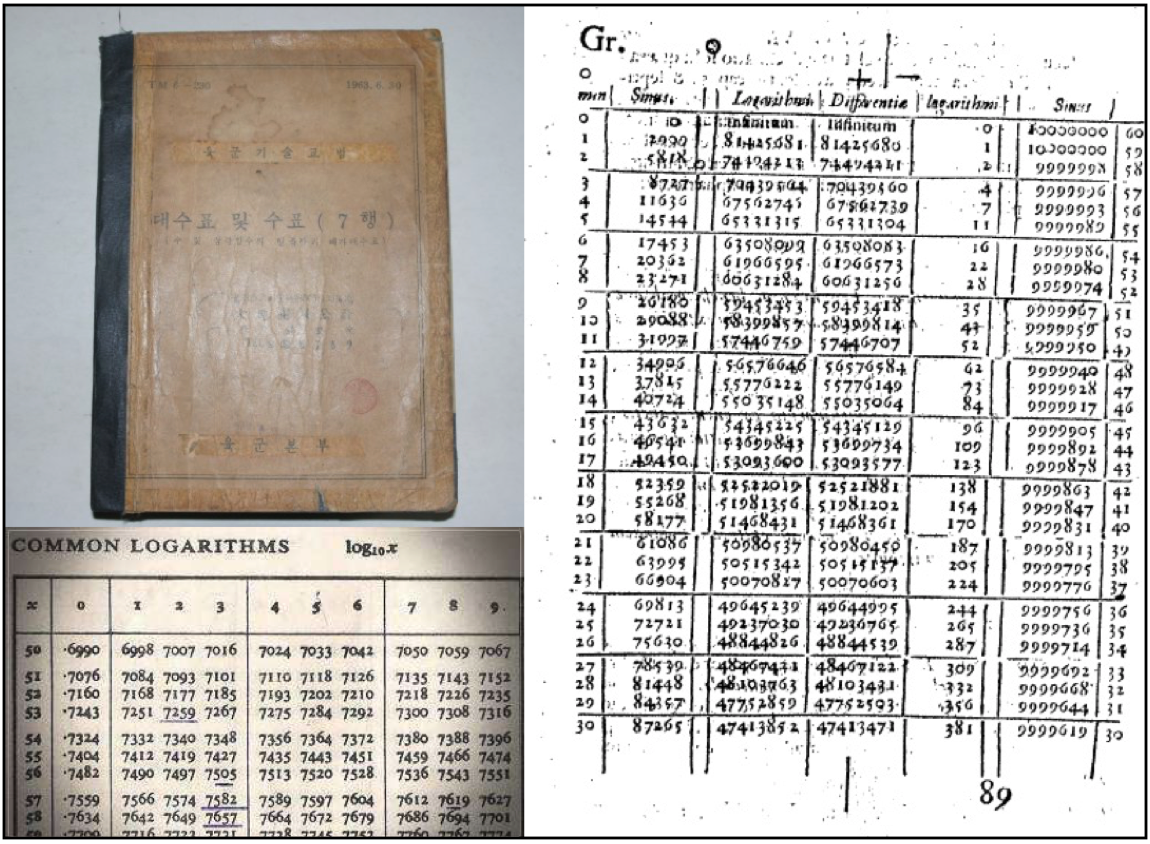 TM 6-230 1963.6.30
육 군 기 술 교 범
대수표 및 수표 ( 7 행 )
육 군 본 부
COMMON LOGARITHMS log₁₀x
x 0 1 2 3 4 5 6 7 8 9
50 ·6990 6998 7007 7016 7024 7033 7042 7050 7059 7067
51 ·7076 7084 7093 7101 7110 7118 7126 7135 7143 7152
52 ·7160 7168 7177 7185 7193 7202 7210 7218 7226 7235
53 ·7243 7251 7259 7267 7275 7284 7292 7300 7308 7316
54 ·7324 7332 7340 7348 7356 7364 7372 7380 7388 7396
55 ·7404 7412 7419 7427 7435 7443 7451 7459 7466 7474
56 ·7482 7490 7497 7505 7513 7520 7528 7536 7543 7551
57 ·7559 7566 7574 7582 7589 7597 7604 7612 7619 7627
58 ·7634 7642 7649 7657 7664 7672 7679 7686 7694 7701
Gr. 0
0 + −
min Sinus Logarithmi Differentiæ logarithmi Sinus
0 0 Infinitum Infinitum 0 10000000 60
1 2909 81425681 81425680 1 10000000 59
2 5818 74494213 74494211 2 9999998 58
3 8727 70439564 70439560 4 9999996 57
4 11636 67562746 67562739 7 9999993 56
5 14544 65331315 65331304 11 9999989 55
6 17453 63508099 63508083 16 9999986 54
7 20362 61966595 61966573 22 9999980 53
8 23271 60631284 60631256 28 9999974 52
9 26180 59453453 59453418 35 9999967 51
10 29088 58399857 58399814 43 9999959 50
11 31997 57446759 57446707 52 9999950 49
12 34906 56576646 56576584 62 9999940 48
13 37815 55776222 55776149 73 9999928 47
14 40724 55035148 55035064 84 9999917 46
15 43632 54345225 54345129 96 9999905 45
16 46541 53699843 53699734 109 9999892 44
17 49450 53093600 53093577 123 9999878 43
18 52359 52522019 52521881 138 9999863 42
19 55268 51981356 51981202 154 9999847 41
20 58177 51468431 51468361 170 9999831 40
21 61086 50980537 50980450 187 9999813 39
22 63995 50515342 50515137 205 9999795 38
23 66904 50070827 50070603 224 9999776 37
24 69813 49645239 49644995 244 9999756 36
25 72721 49237030 49236765 265 9999736 35
26 75630 48844826 48844539 287 9999714 34
27 78539 48467431 48467122 309 9999692 33
28 81448 48103763 48103431 332 9999668 32
29 84357 47752859 47752503 356 9999644 31
30 87265 47413852 47413471 381 9999619 30
89